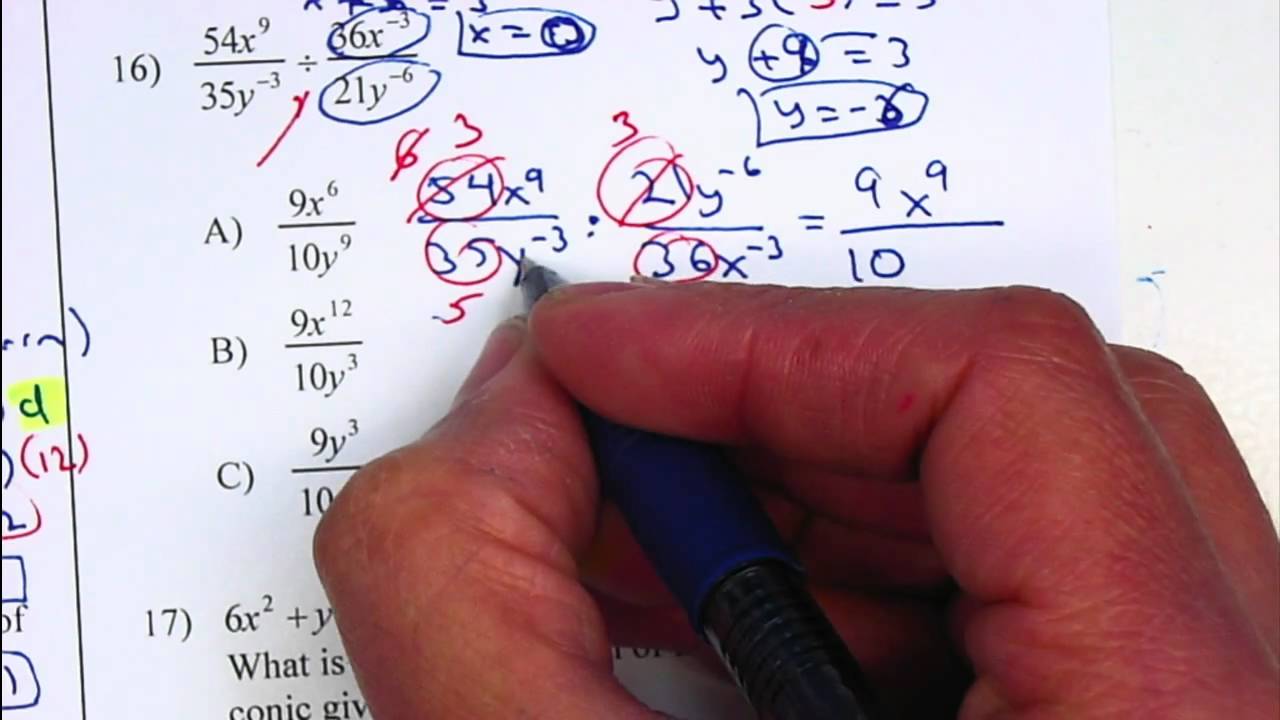 16) 54x⁹ / 35y⁻³ ÷ 36x⁻³ / 21y⁻⁶
x = 0
y + 9 = 3
y = -6
6 3 3
54x⁹ / 35y⁻³ · 21y⁻⁶ / 36x⁻³ = 9x⁹ / 10
5
A) 9x⁶ / 10y⁹
B) 9x¹² / 10y³
C) 9y³ / 10
d
(12)
17) 6x² + y
of
What is
conic giv